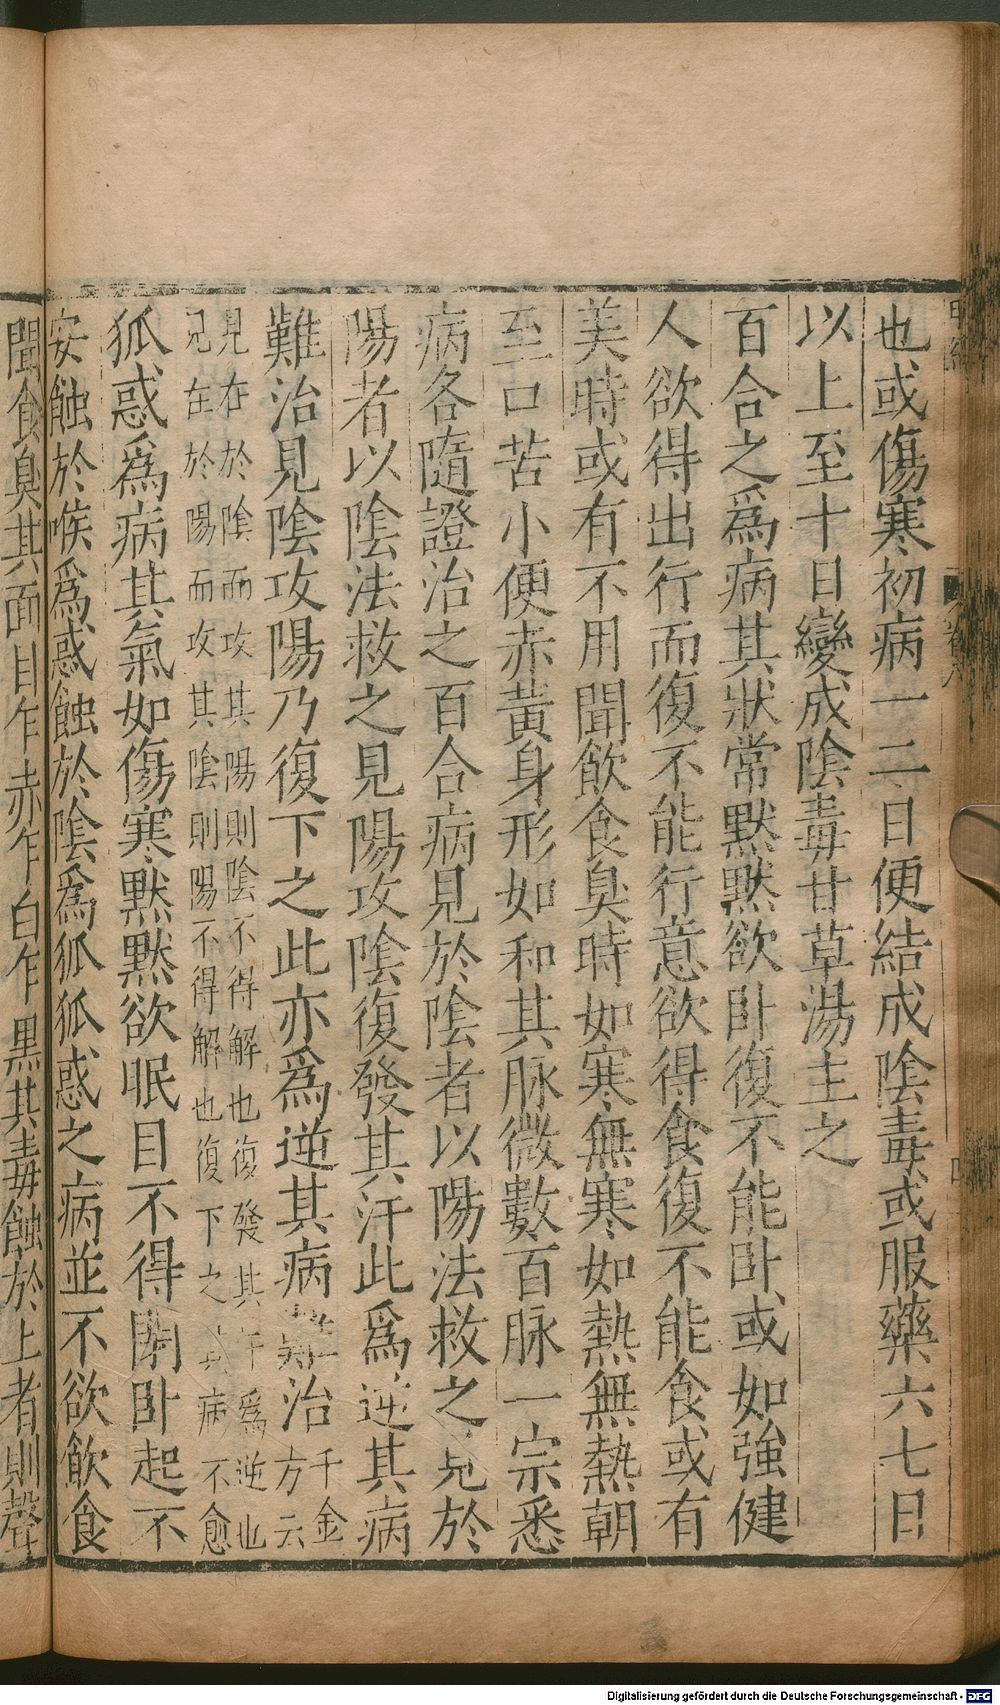 也或傷寒初病一二日便結成陰毒或服藥六七日
以上至十日變成陰毒甘草湯主之
百合之爲病其狀常默默欲臥復不能臥或如強健
人欲得出行而復不能行意欲得食復不能食或有
美時或有不用聞飲食臭時如寒無寒如熱無熱朝
至口苦小便赤黃身形如和其脉微數百脉一宗悉
病各隨證治之百合病見於陰者以陽法救之見於
陽者以陰法救之見陽攻陰復發其汗此爲逆其病
難治見陰攻陽乃復下之此亦爲逆其病難治千金方云
見在於陰而攻其陽則陰不得解也復發其汗爲逆也
見在於陽而攻其陰則陽不得解也復下之其病不愈
狐惑爲病其氣如傷寒默默欲眠目不得閉臥起不
安蝕於喉爲惑蝕於陰爲狐狐惑之病並不欲飲食
聞食臭其面目乍赤乍白乍黑其毒蝕於上者則聲
甲經
卷八
四
Digitalisierung gefördert durch die Deutsche Forschungsgemeinschaft - DFG